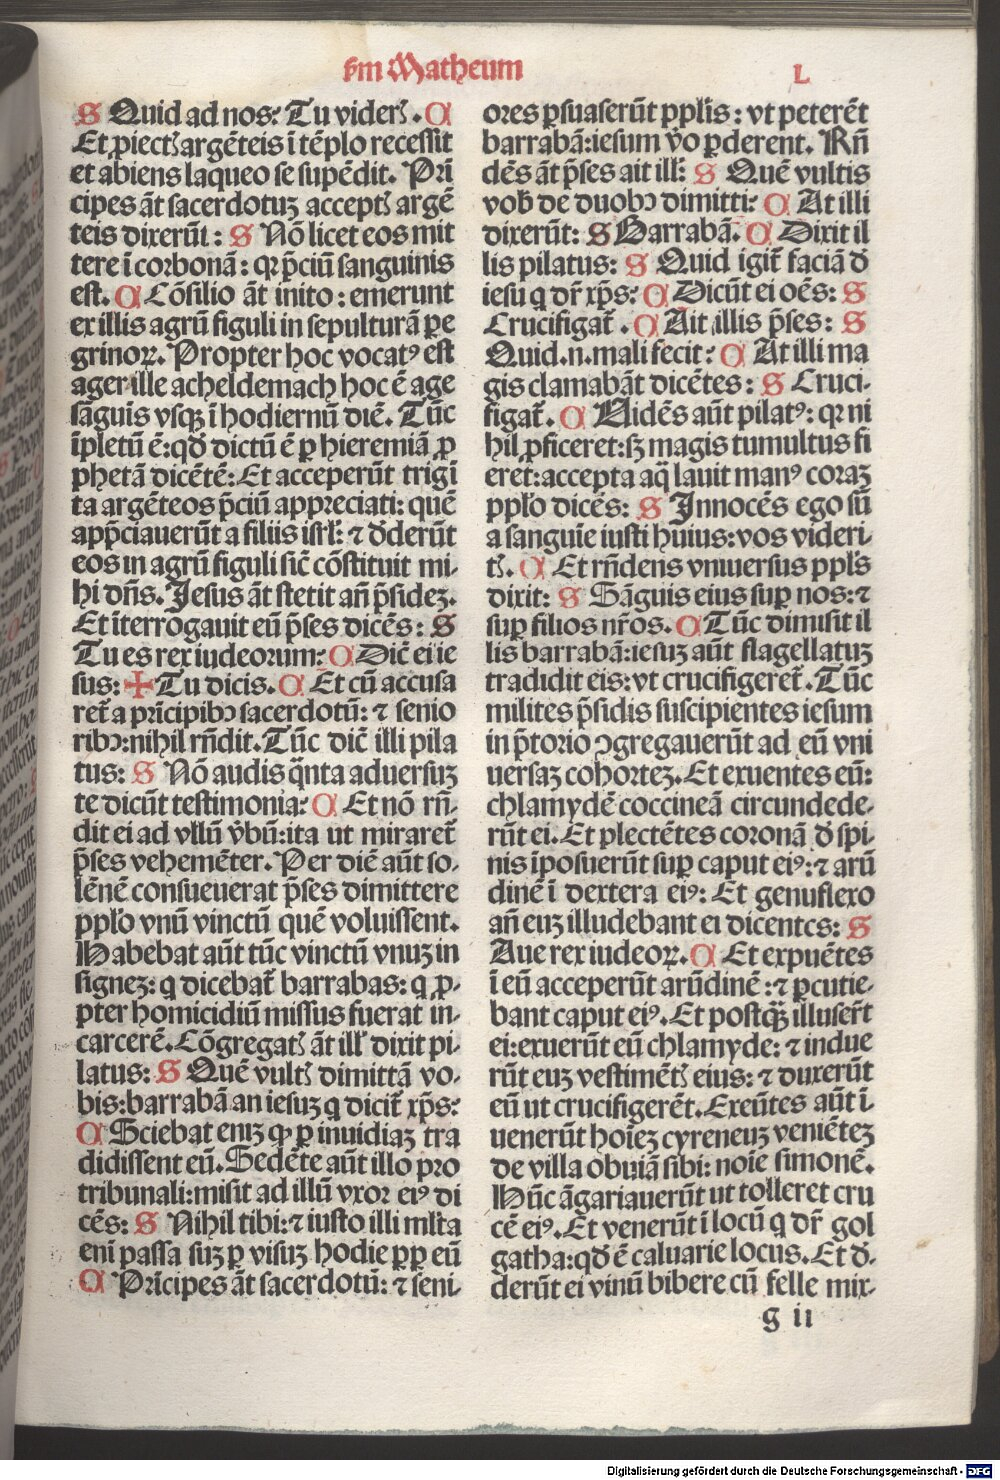 ẜm Matheum
L
S Quid ad nos? Tu viderꝭ. C
Et ꝓiectꝭ argēteis ī tēplo recessit
et abiens laqueo se supēdit. Pri
cipes āt sacerdotuȝ acceptꝭ argē
teis dixerūt: S Nō licet eos mit
tere ī corbonā: qꝛ p̄ciū sanguinis
est. C Cōsilio āt inito: emerunt
ex illis agrū figuli in sepulturā ꝑe
grinoꝝ. Propter hoc vocatꝰ est
ager ille acheldemach hoc ē age
sāguīs vsqꝫ ī hodiernū diē. Tūc
īpletū ē: qd̄ dictū ē ꝑ hieremiā ꝓ
phetā dicētē: Et acceperūt trigī
ta argēteos p̄ciū appreciati: quē
app̄ciauerūt a filiis isrł: ⁊ dederūt
eos in agrū figuli sic̄ cōstituit mi-
hi dn̄s. Jesus āt stetit an̄ p̄sideȝ.
Et īterrogauit eū p̄ses dicēs: S
Tu es rex iudeorum? C Dic̄ ei ie
sus: ✠ Tu dicis. C Et cū accusa
ret̄ a prīcipibꝰ sacerdotū: ⁊ senio
ribꝰ: nihil rn̄dit. Tūc dic̄ illi pila
tus: S Nō audis q̄nta aduersuȝ
te dicūt testimonia? C Et nō rn̄-
dit ei ad vllū v̄bū: ita ut miraret̄
p̄ses vehemēter. Per diē aūt so-
lēnē consueuerat p̄ses dimittere
ppl̄o vnū vinctū quē voluissent.
Habebat aūt tūc vinctū vnuȝ in
signeȝ: q dicebat̄ barrabas: q ꝓ-
pter homicidiū missus fuerat in-
carcerē. Cōgregatꝭ āt ill̄ dixit pi-
latus: S Quē vultꝭ dimittā vo-
bis: barrabā an iesuȝ q dicit̄ xp̄s?
C Sciebat eniȝ ꝙ ꝑ inuidiaȝ tra
didissent eū. Sedēte aūt illo pro
tribunali: misit ad illū vxor eiꝰ di
cēs: S Nihil tibi: ⁊ iusto illi ml̄ta
eni passa suȝ ꝑ visuȝ hodie ꝓp eū
C Prīcipes āt sacerdotū: ⁊ seni-
ores ꝑsuaserūt ppl̄is: vt peterēt
barrabā: iesum v̄o ꝑderent. Rn̄
dēs āt p̄ses ait ill̄: S Quē vultis
vob̄ de duobꝰ dimitti? C At illi
dixerūt: S Barrabā. C Dixit il
lis pilatus: S Quid igit̄ faciā d̄
iesu q dr̄ xp̄s? C Dicūt ei oēs: S
Crucifigat̄. C Ait illis p̄ses: S
Quid .n. mali fecit? C At illi ma
gis clamabāt dicētes: S Cruci-
figat̄. C Uidēs aūt pilatꝰ: qꝛ ni
hil ꝓficeret: sȝ magis tumultus fi
eret: accepta aq̄ lauit manꝰ coraȝ
ppl̄o dicēs: S Innocēs ego sū
a sanguīe iusti huius: vos videri-
tꝭ. C Et rn̄dens vniuersus ppl̄s
dixit: S Sāguis eius suꝑ nos: ⁊
suꝑ filios nr̄os. C Tūc dimisit il
lis barrabā: iesuȝ aūt flagellatuȝ
tradidit eis: vt crucifigeret̄. Tūc
milites p̄sidis suscipientes iesum
in p̄torio ꝯgregauerūt ad eū vni
uersaȝ cohorteȝ. Et exuentes eū:
chlamydē coccineā circundede-
rūt ei. Et plectētes coronā d̄ spi-
nis īposuerūt suꝑ caput eiꝰ: ⁊ arū
dinē ī dextera eiꝰ: Et genuflexo
an̄ euȝ illudebant ei dicentes: S
Aue rex iudeoꝝ. C Et expuētes
ī eū acceperūt arūdinē: ⁊ ꝑcutie-
bant caput eiꝰ. Et postqꝫ̄ illuser̄t
ei: exuerūt eū chlamyde: ⁊ indue
rūt euȝ vestimētꝭ eius: ⁊ duxerūt
eū ut crucifigerēt. Exeūtes aūt ī-
uenerūt hoīeȝ cyreneuȝ veniēteȝ
de villa obuiā sibi: noīe simonē.
Hūc āgariauerūt ut tolleret cru
cē eiꝰ. Et venerūt ī locū q dr̄ gol
gatha: qd̄ ē caluarie locus. Et d̄-
derūt ei vinū bibere cū felle mix-
g ii
Digitalisierung gefördert durch die Deutsche Forschungsgemeinschaft - DFG